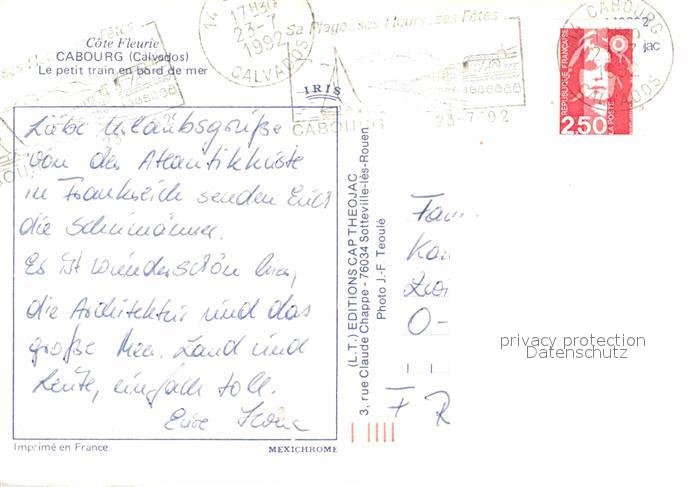 Côte Fleurie
CABOURG (Calvados)
Le petit train en bord de mer
17H30
23-7
1992
CALVADOS
Sa Plage, ses Fleurs, ses Fêtes
CABOURG
23-7 92
CABOURG
jac
REPUBLIQUE FRANÇAISE
LA POSTE
2,50
IRIS
Liebe Urlaubsgrüße
von der Atlantikküste
in Frankreich senden Euch
die
Es ist wunderschön hier,
die Architektur und das
große Meer. Land und
Leute, einfach toll.
Eure
Imprimé en France
MEXICHROME
(L.T.) EDITIONS CAP THEOJAC
3, rue Claude Chappe - 76034 Sotteville-lès-Rouen
Photo J.-F. Teoulé
Fam
O-
F R
privacy protection
Datenschutz